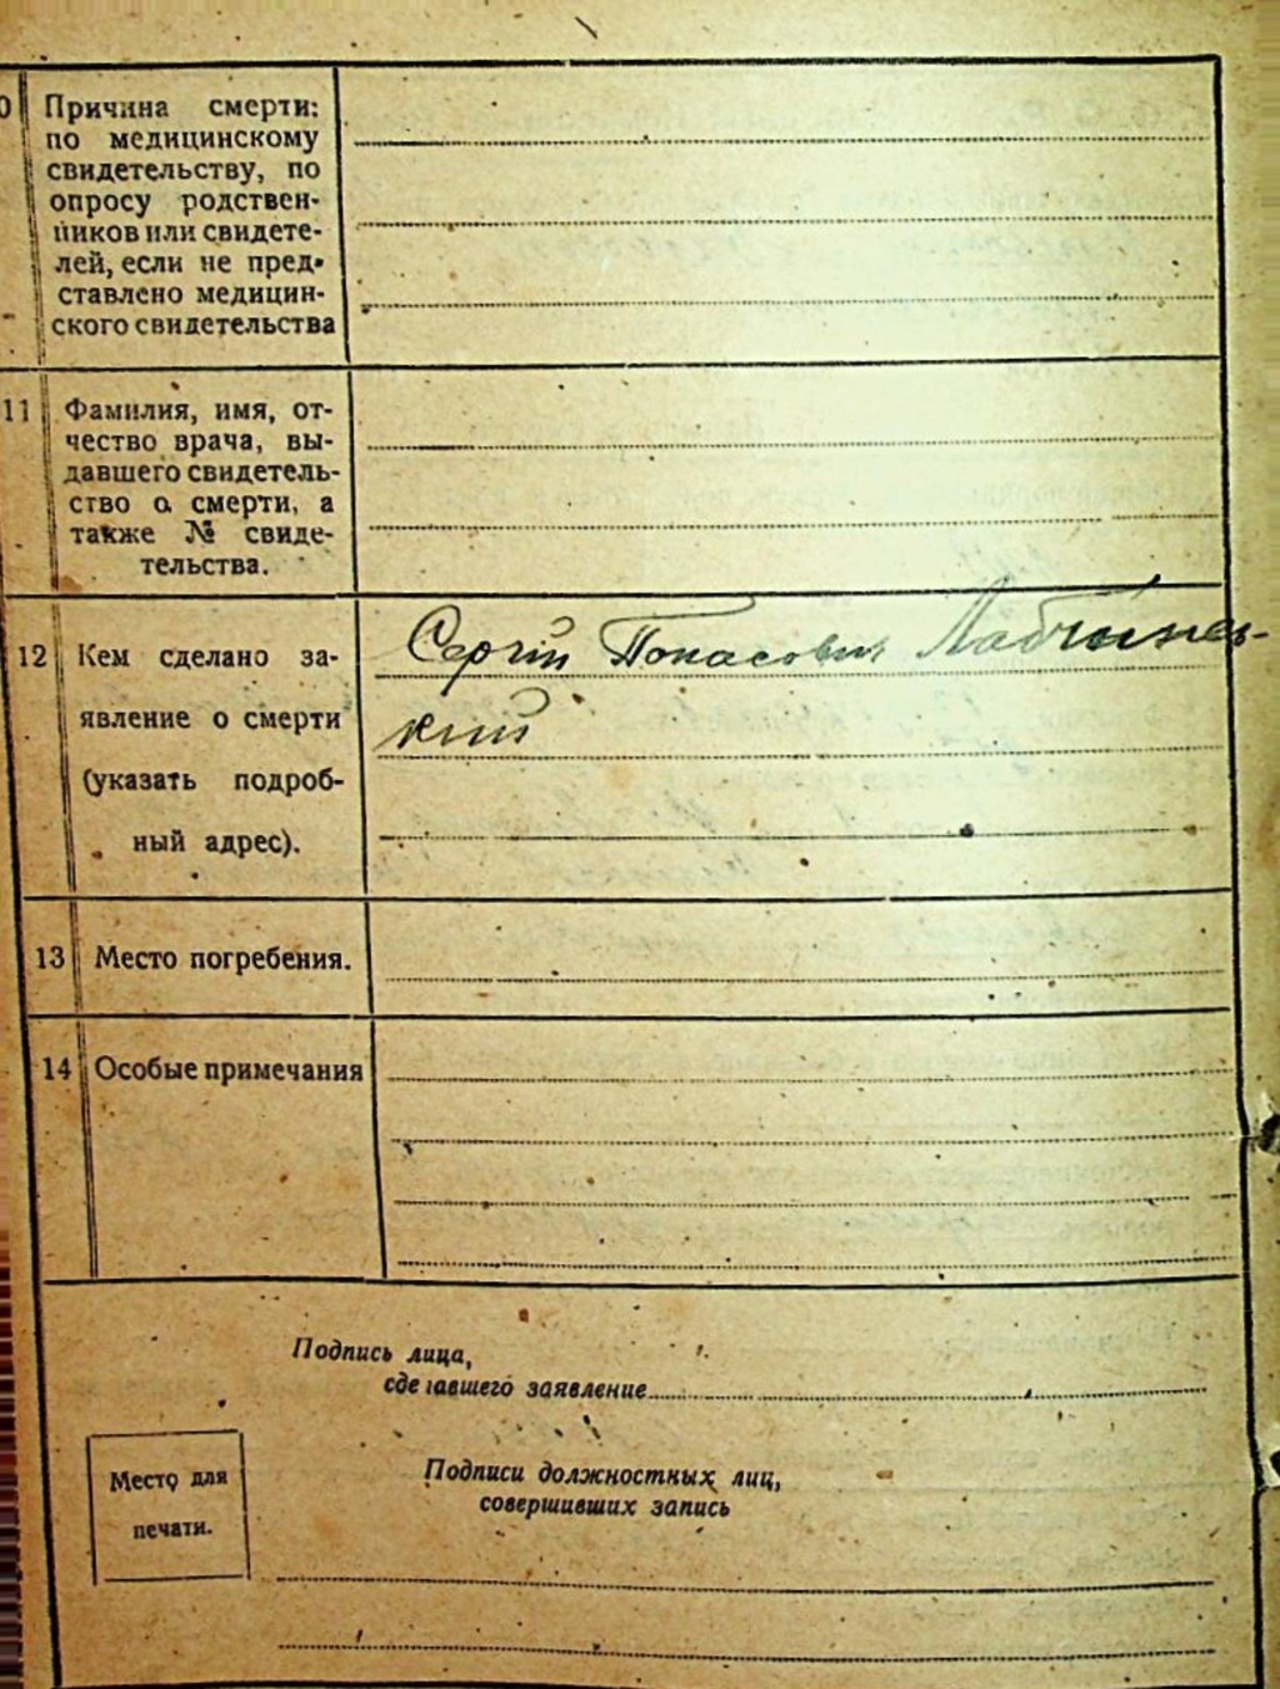 0 Причина смерти:
по медицинскому
свидетельству, по
опросу родствен-
ников или свидете-
лей, если не пред-
ставлено медицин-
ского свидетельства
11 Фамилия, имя, от-
чество врача, вы-
давшего свидетель-
ство о смерти, а
также № свиде-
тельства.
12 Кем сделано за-
явление о смерти
(указать подроб-
ный адрес).
Сергій
кий
13 Место погребения.
14 Особые примечания
Подпись лица,
сделавшего заявление
Место для
печати.
Подписи должностных лиц,
совершивших запись